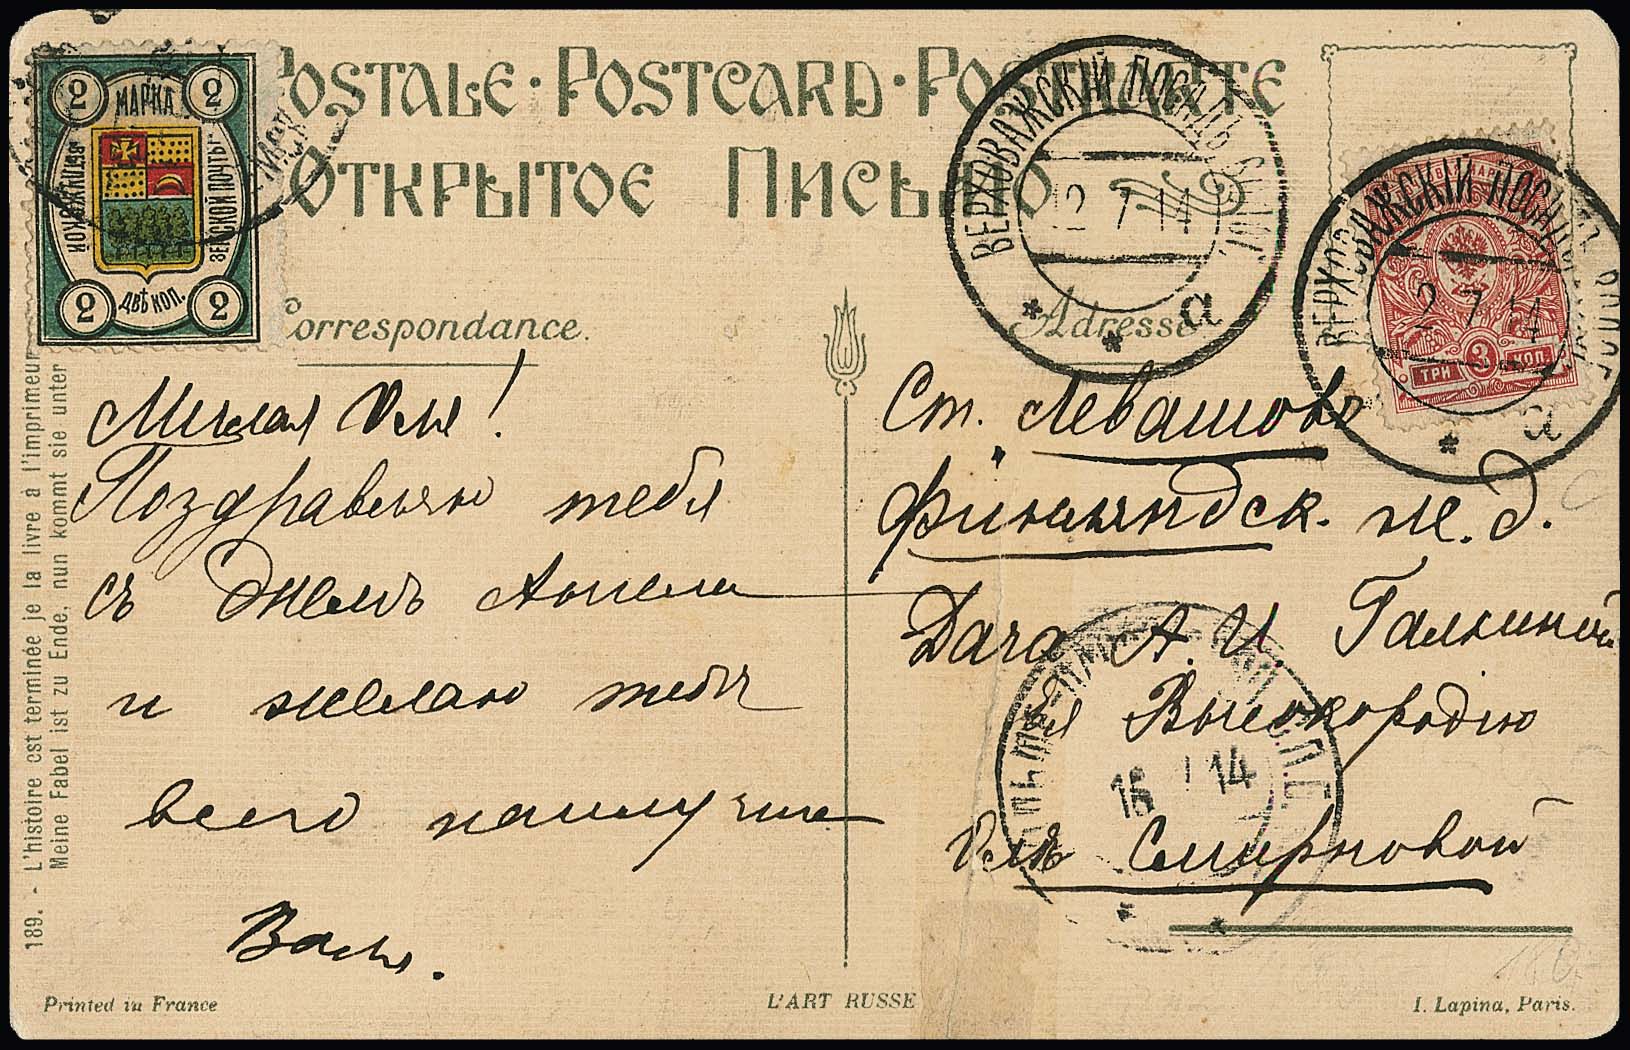 2 МАРКА 2
ЗЕМСКОЙ ПОЧТЫ
2 ДВѢ КОП. 2
POSTALE · POSTCARD ·
ОТКРЫТОЕ ПИСЬМО
ВЕРХОВАЖСКІЙ ПОСАДЪ ВОЛОГ.
12 7 14
а
ВЕРХОВАЖСКІЙ ПОСАДЪ
12 7 14
а
ТРИ 3 КОП.
Correspondance.
Adresse
Милая Оля!
Поздравляю тебя
съ Днемъ Ангела
и желаю тебѣ
всего наилучше
Валя.
Ст. Левашово
Финляндск. ж. д.
Дача А. И. Галкиной
Ея Высокородію
Олѣ Смирновой
15 14
189. - L'histoire est terminée je la livre à l'imprimeur
Meine Fabel ist zu Ende, nun kommt sie unter
Printed in France
L'ART RUSSE
I. Lapina, Paris.